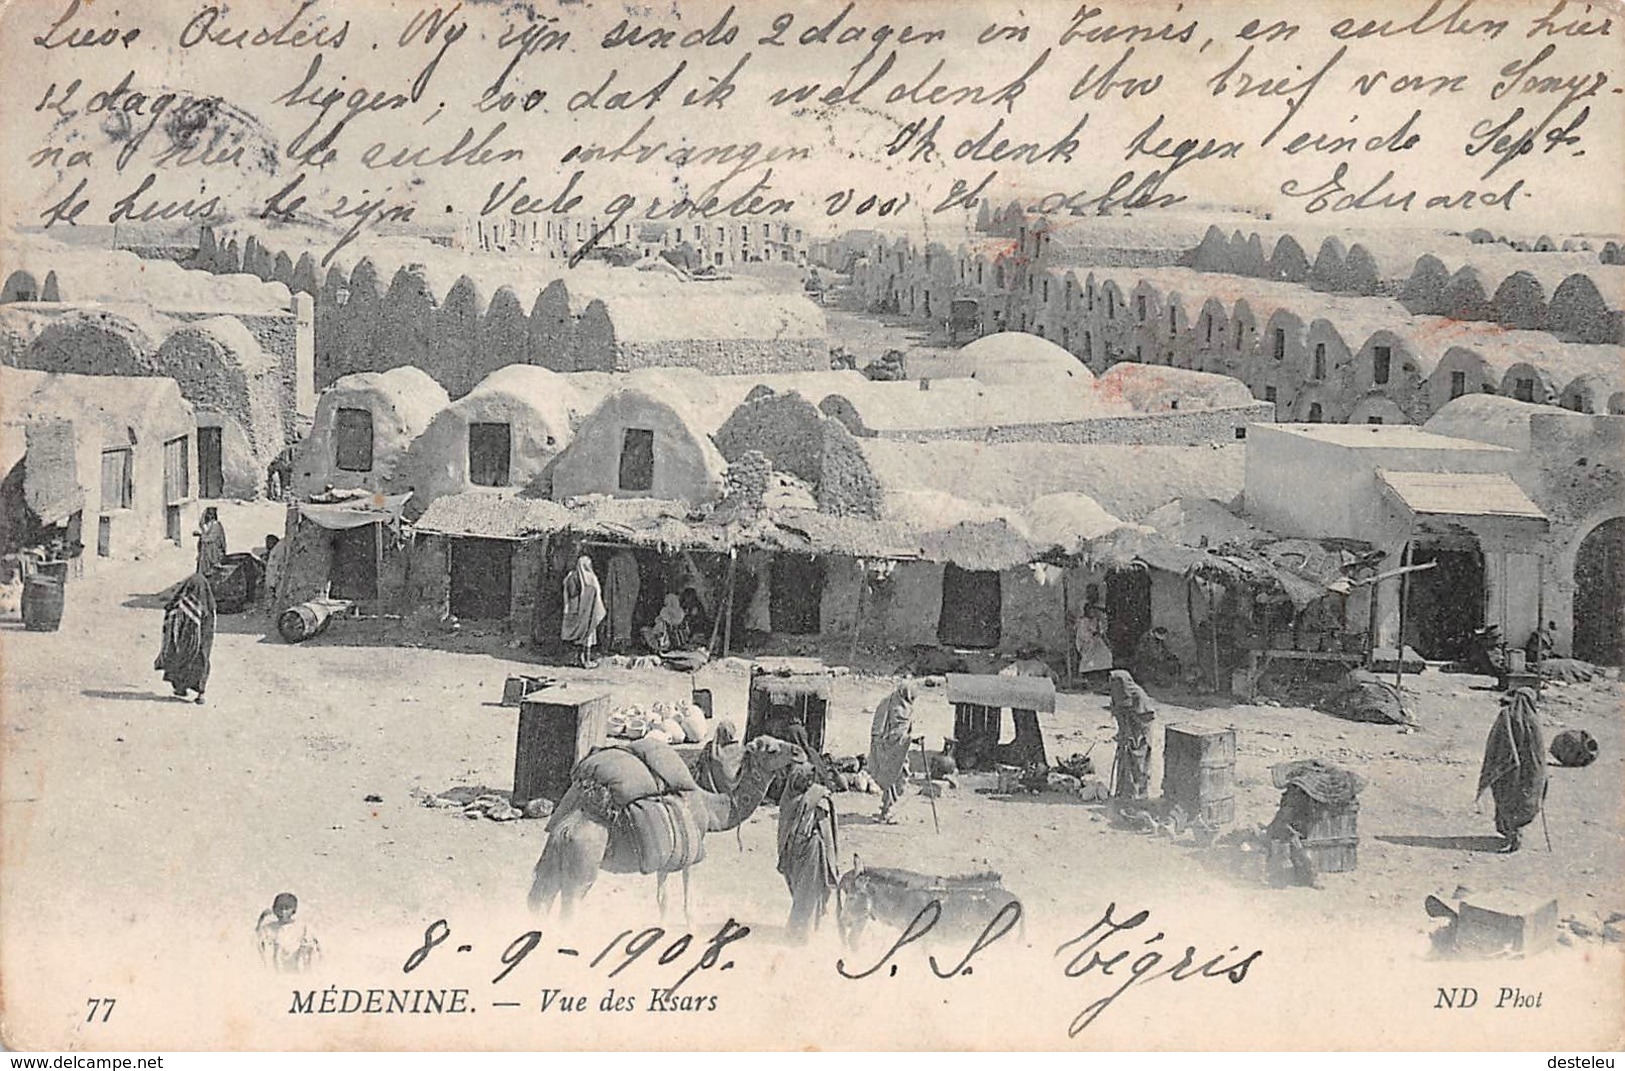 Lieve Ouders. Wy zijn sinds 2 dagen in Tunis, en zullen hier
12 dagen liggen, zoo dat ik wel denk Uw brief van Smyr-
na hier te zullen ontvangen. Ik denk tegen einde Sept.
te huis te zijn. Veele groeten voor U allen Eduard
8-9-1908. S.S. Tigris
77 MÉDENINE. — Vue des Ksars ND Phot
https://www.delcampe.net desteleu